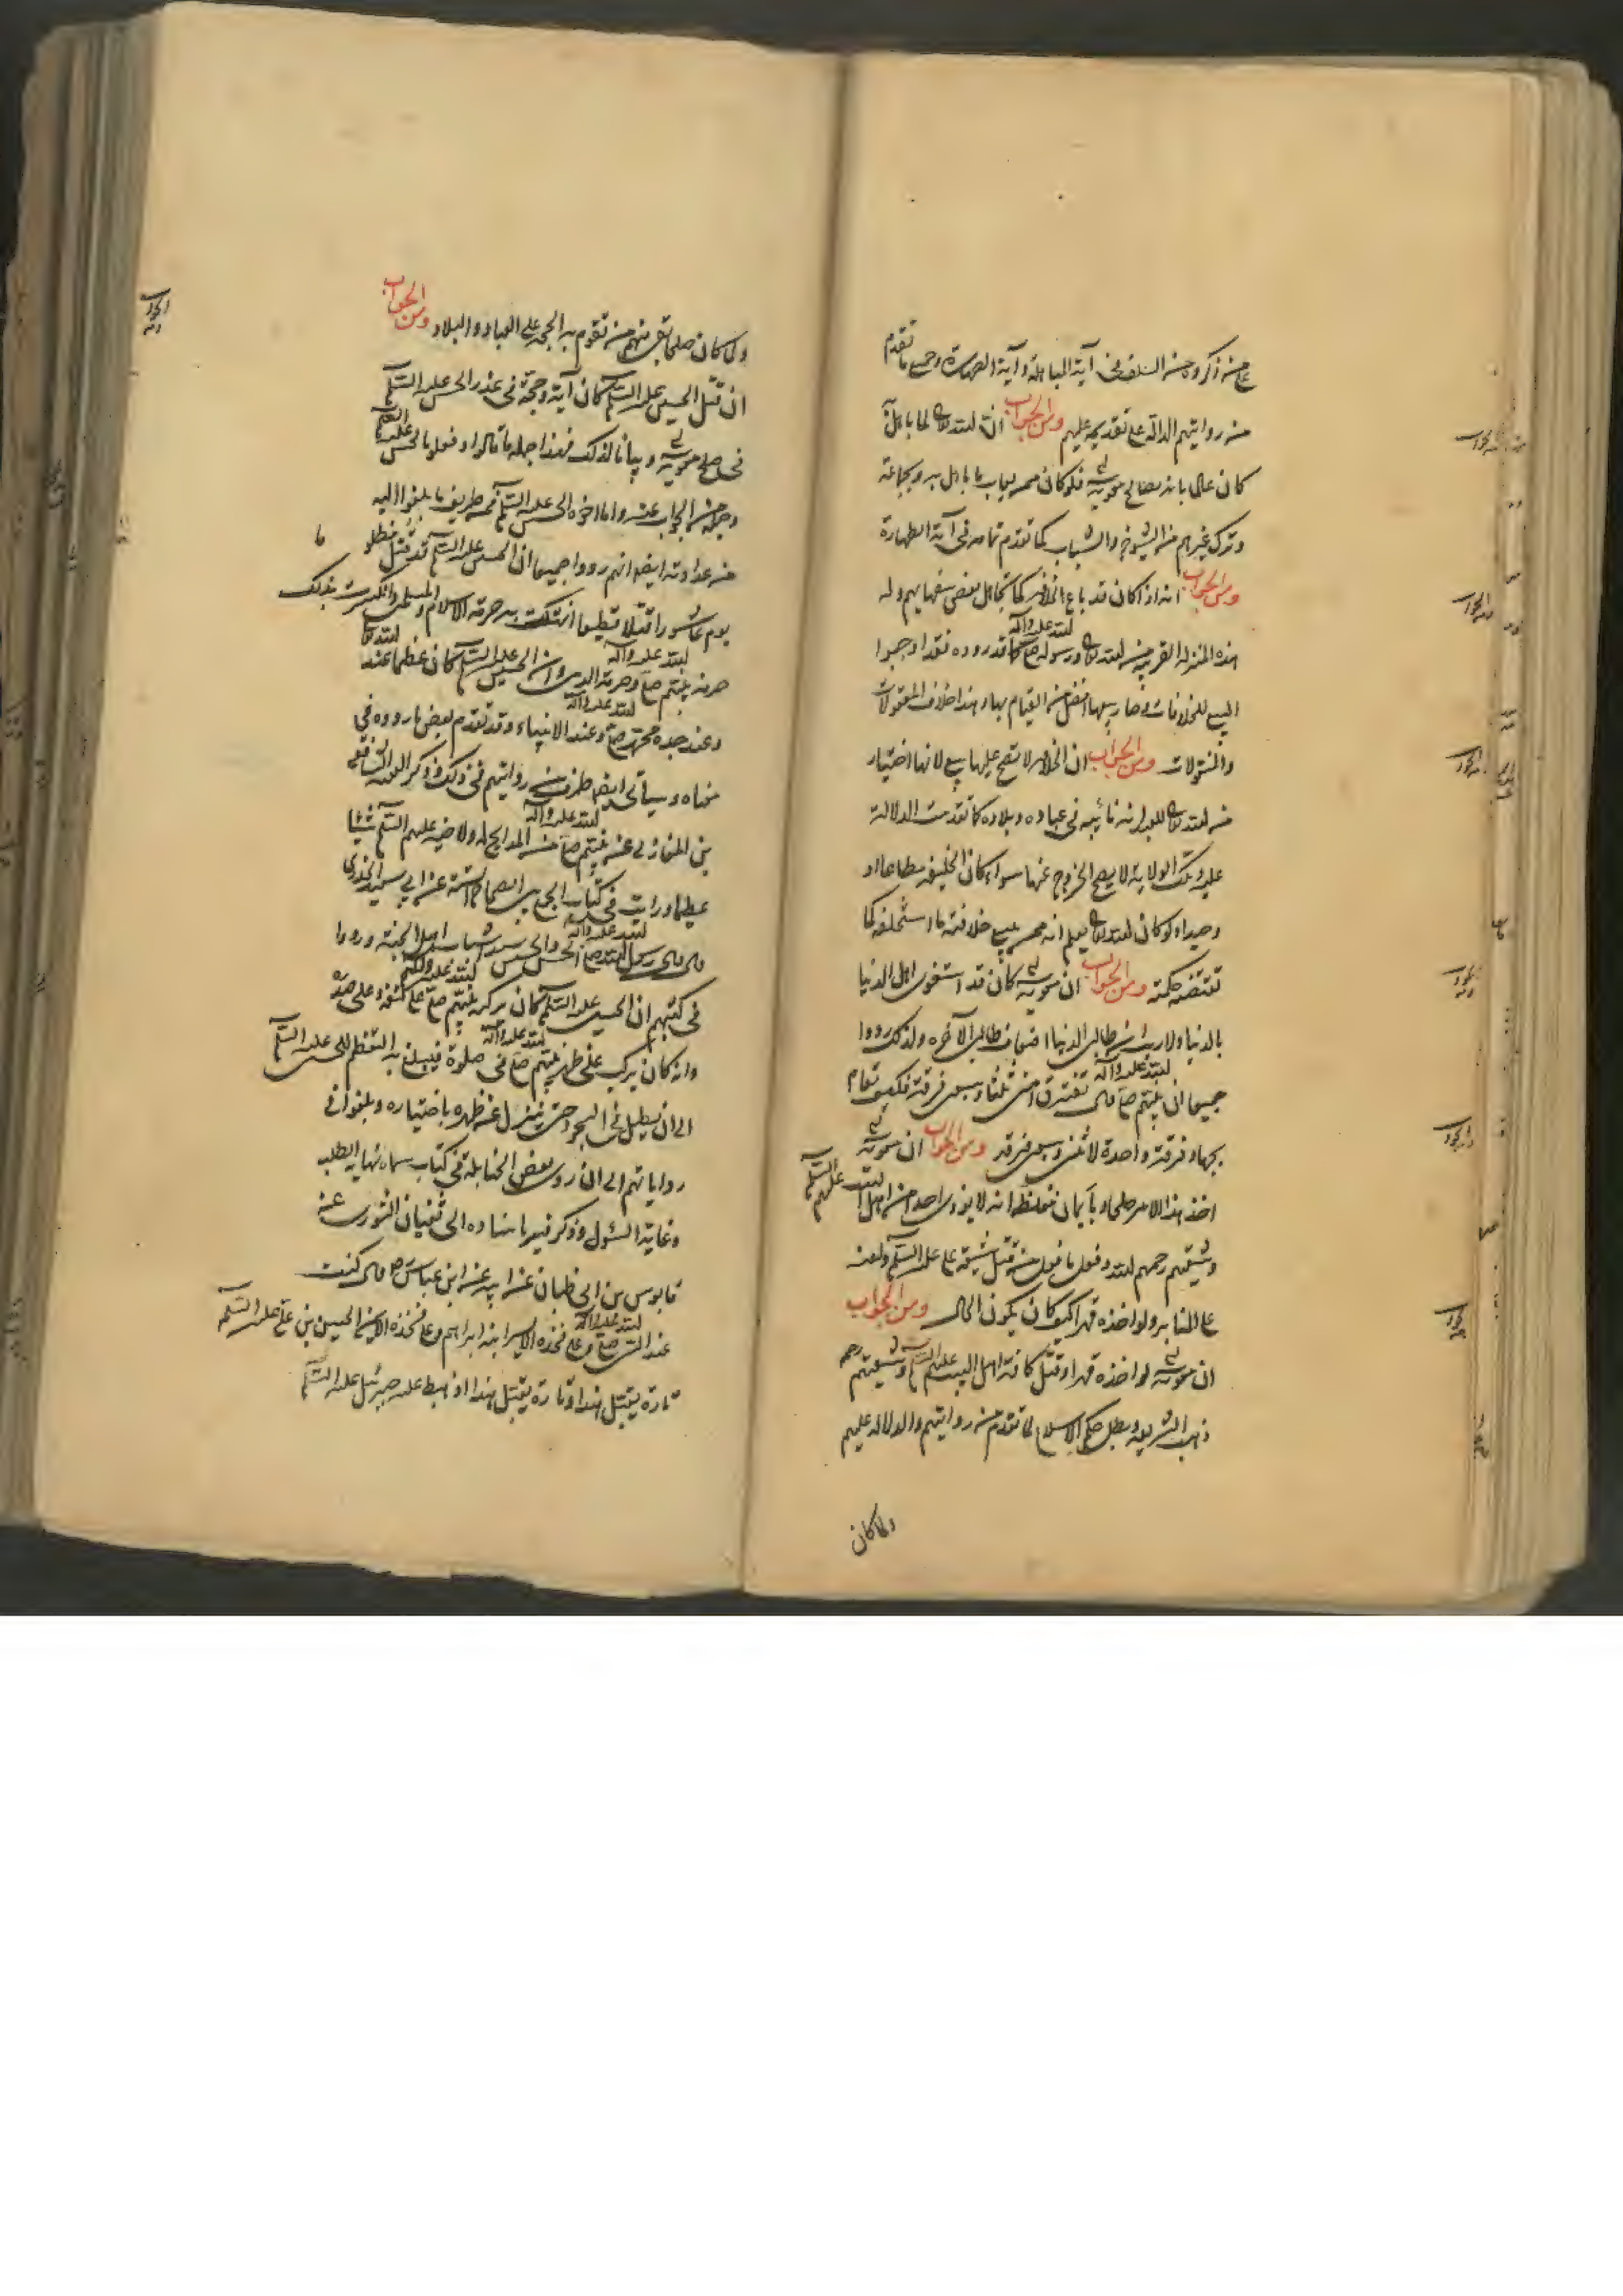 على من ذكروه من السلف في آية المباهلة وآية الطهارة وجميع ما تقدم
من رواياتهم الدالة على تقديمه عليهم ومن الجواب ان الله تعالى لما باهل
كان عالما بانه يصالح معوية فلو كان صلحه يعاب ما باهل به وبجماعته
وترك غيرهم من الشيوخ والشباب كما تقدم تمامه في آية الطهارة
ومن الجواب انه اذا كان قد باع الخلافة كما تجاهل بعض سفهائهم وله
هذه المنزلة القريبة من الله تعالى ورسوله صلى الله عليه وآله كما قد رووه فقد اوجبوا
البيع للخلافات وصار بيعها افضل من القيام بها وهذا خلاف المعقولات
والمنقولات ومن الجواب ان الخلافة لا تصح عليها بيع لانها اختيار
من الله تعالى للعبد انه نائبه في عباده وبلاده كما تقدمت الدلالة
عليه وتلك الولاية لا يصح الخروج عنها سواء كان الخليفة مطاعا او
وحيدا ولو كان الله تعالى يعلم انه ممن يبيع خلافته ما استخلفه كما
تقتضيه حكمته ومن الجواب ان معوية كان قد استغوى اهل الدنيا
بالدنيا ولا ريب ان طالبي الدنيا اضعاف طالبي الآخرة ولذلك رووا
جميعا ان نبيهم صلى الله عليه وآله قال تفترق امتي ثلثا وسبعين فرقة فكيف تقام
بجهاد فرقة واحدة لاثنين وسبعين فرقة ومن الجواب ان معوية
اخذ هذا الامر صلحا وبأيمان مغلظة انه لا يؤذي احدا من اهل البيت عليهم السلم
وشيعتهم رحمهم الله وفعل ما فعل من قتل شيعة علي عليه السلم ولعنه
على المنابر ولو اخذه قهرا كيف كان يكون الحال ومن الجواب
ان معوية لو اخذه قهرا وقتل كافة اهل البيت عليهم السلم وشيعتهم رحمه
ذهب الشريعة وبطل حكم الاسلام لما تقدم من رواياتهم والدلالة عليهم
ولما كان
ولما كان صلحا بقي منهم من تقوم به الحجة على العباد والبلاد ومن الجواب
ان قتل الحسين عليه السلم كان آية وحجة في عذر الحسن عليه السلم
في صلح معوية وبيانا لذلك فهذا جملة ما قالوا وفعلوا بالحسن عليه السلم
وجملة من الجواب عنه واما اخوه الحسين عليه السلم فمن طريف ما بلغوا اليه
من عداوته ايضا انهم رووا جميعا ان الحسين عليه السلم قد قتل مظلوما
يوم عاشورا قتلا فظيعا انهتكت به حرمة الاسلام والمسلمين وانكسرت بذلك
حرمة نبيهم صلى الله عليه وآله وحرمة الدين وان الحسين عليه السلم كان عظيما عند الله تعالى
وعند جده محمد صلى الله عليه وآله وعند الانبياء وقد تقدم بعض ما رووه في
معناه وسيأتي ايضا طرف من رواياتهم في ذلك وذكر الفقيه الشافعي
بن المغازلي عن نبيهم صلى الله عليه وآله من المدايح له ولاخيه عليهم السلم شيئا
عظيما ورايت في كتاب الجمع بين الصحاح الستة عن ابي سعيد الخدري
قال قال رسول الله صلى الله عليه وآله الحسن والحسين سيدا شباب اهل الجنة ورووا
في كتبهم ان الحسين عليه السلم كان يركبه نبيهم صلى الله عليه وآله على كتفه وعلى صدره
وانه كان يركب على ظهر نبيهم صلى الله عليه وآله في صلوة فيبلغ به التعظيم للحسين عليه السلم
الى ان يطيل في السجود حتى ينزل عن ظهره باختياره وبلغوا في
رواياتهم الى ان روى بعض الحنابلة في كتاب سماه نهاية الطلب
وغاية السئول وذكر فيه باسناده الى سفيان الثوري عن
قابوس بن ابي ظبيان عن ابيه عن ابن عباس قال كنت
عند النبي صلى الله عليه وآله وعلى فخذه الايسر ابنه ابراهيم وعلى فخذه الايمن الحسين بن علي عليه السلم
تارة يقبل هذا وتارة يقبل هذا اذ هبط عليه جبرئيل عليه السلم